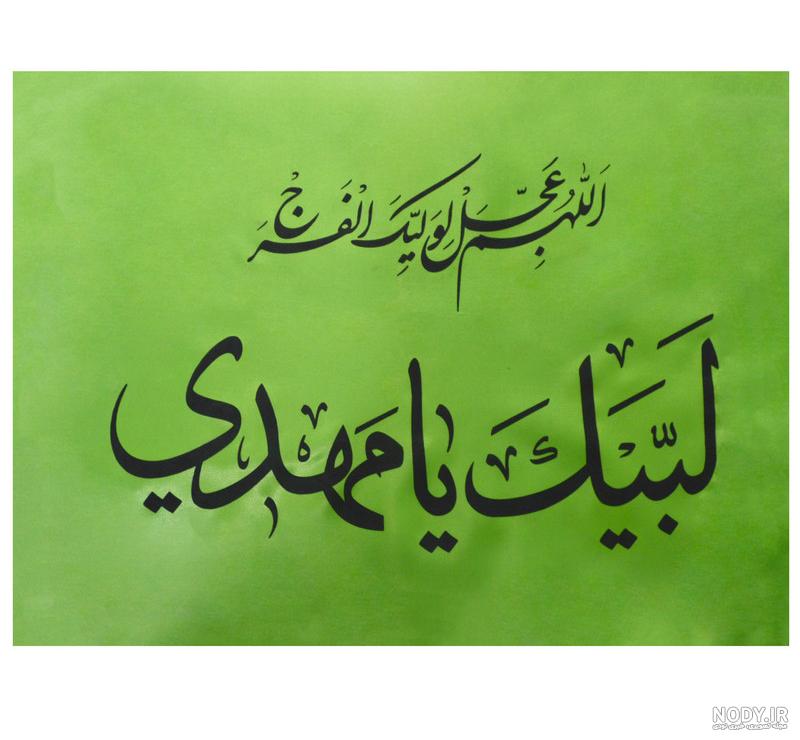 اَللّٰهُمَّ عَجِّلْ لِوَلِیِّکَ الْفَرَجْ
لَبَّيْكَ يا مَهدي
NODY.IR